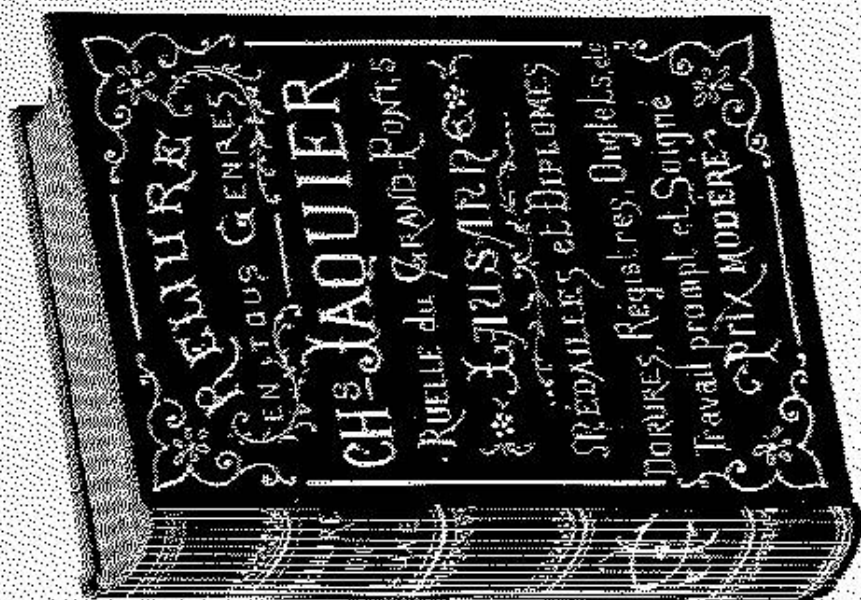 RELIURE
EN TOUS GENRES
CHS JAQUIER
RUELLE du GRAND-PONT, 5
LAUSANNE
MÉDAILLES et DIPLOMES
DORURES, Régistres, Onglets, etc
Travail prompt et Soigné
PRIX MODÉRÉ